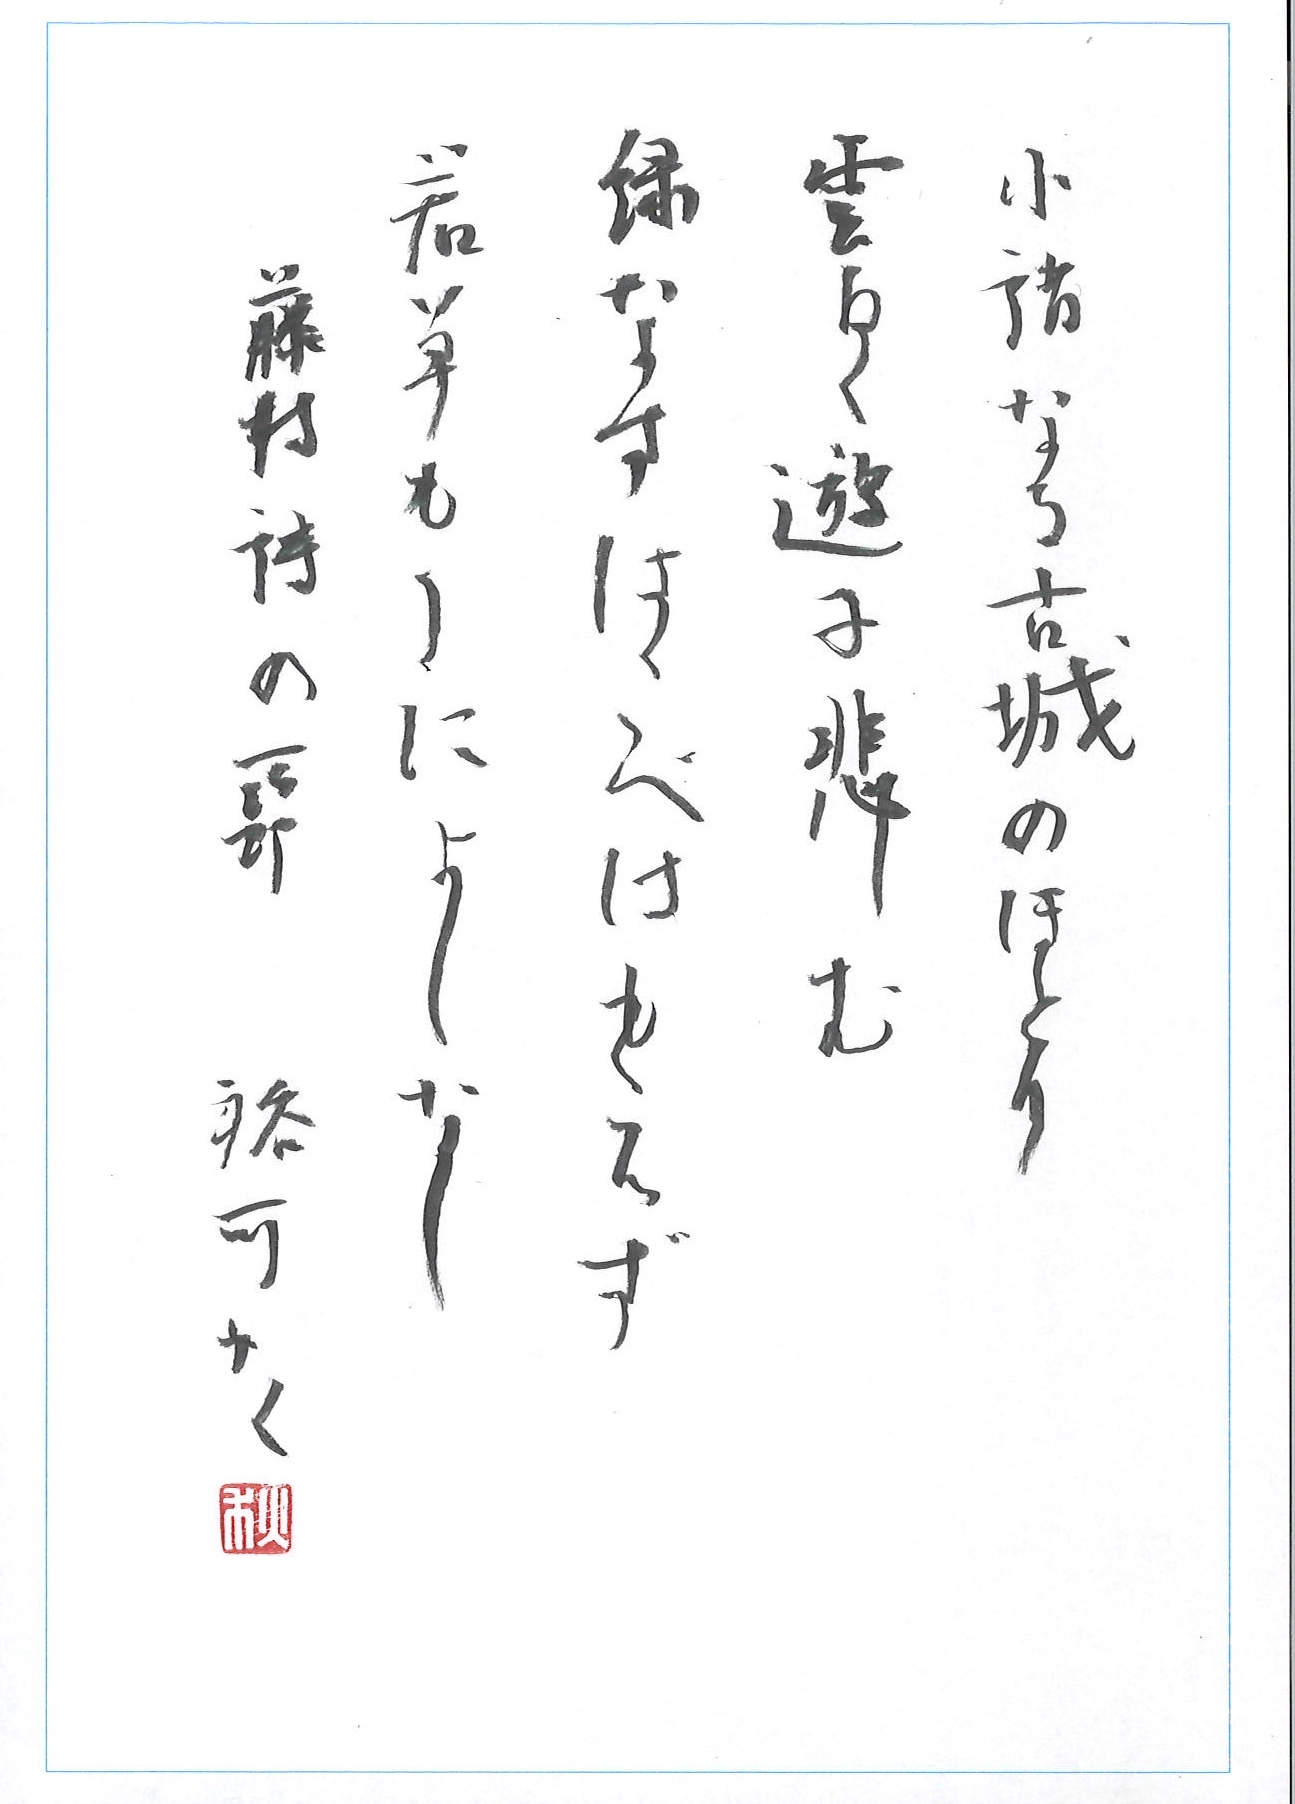 小諸なる古城のほとり
雲白く遊子悲しむ
緑なすはこべはもえず
若草もしくによしなし
藤村詩の一節 かく
秋